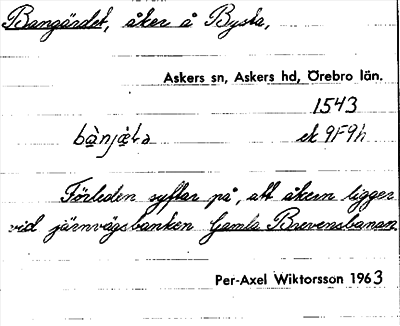 Bangärdet, åker å Bysta,
Askers sn, Askers hd, Örebro län.
1543
bànjǽta ek 9F9h
Förleden syftar på, att åkern ligger
vid järnvägsbanken Gamla Brevensbanan
Per-Axel Wiktorsson 1963